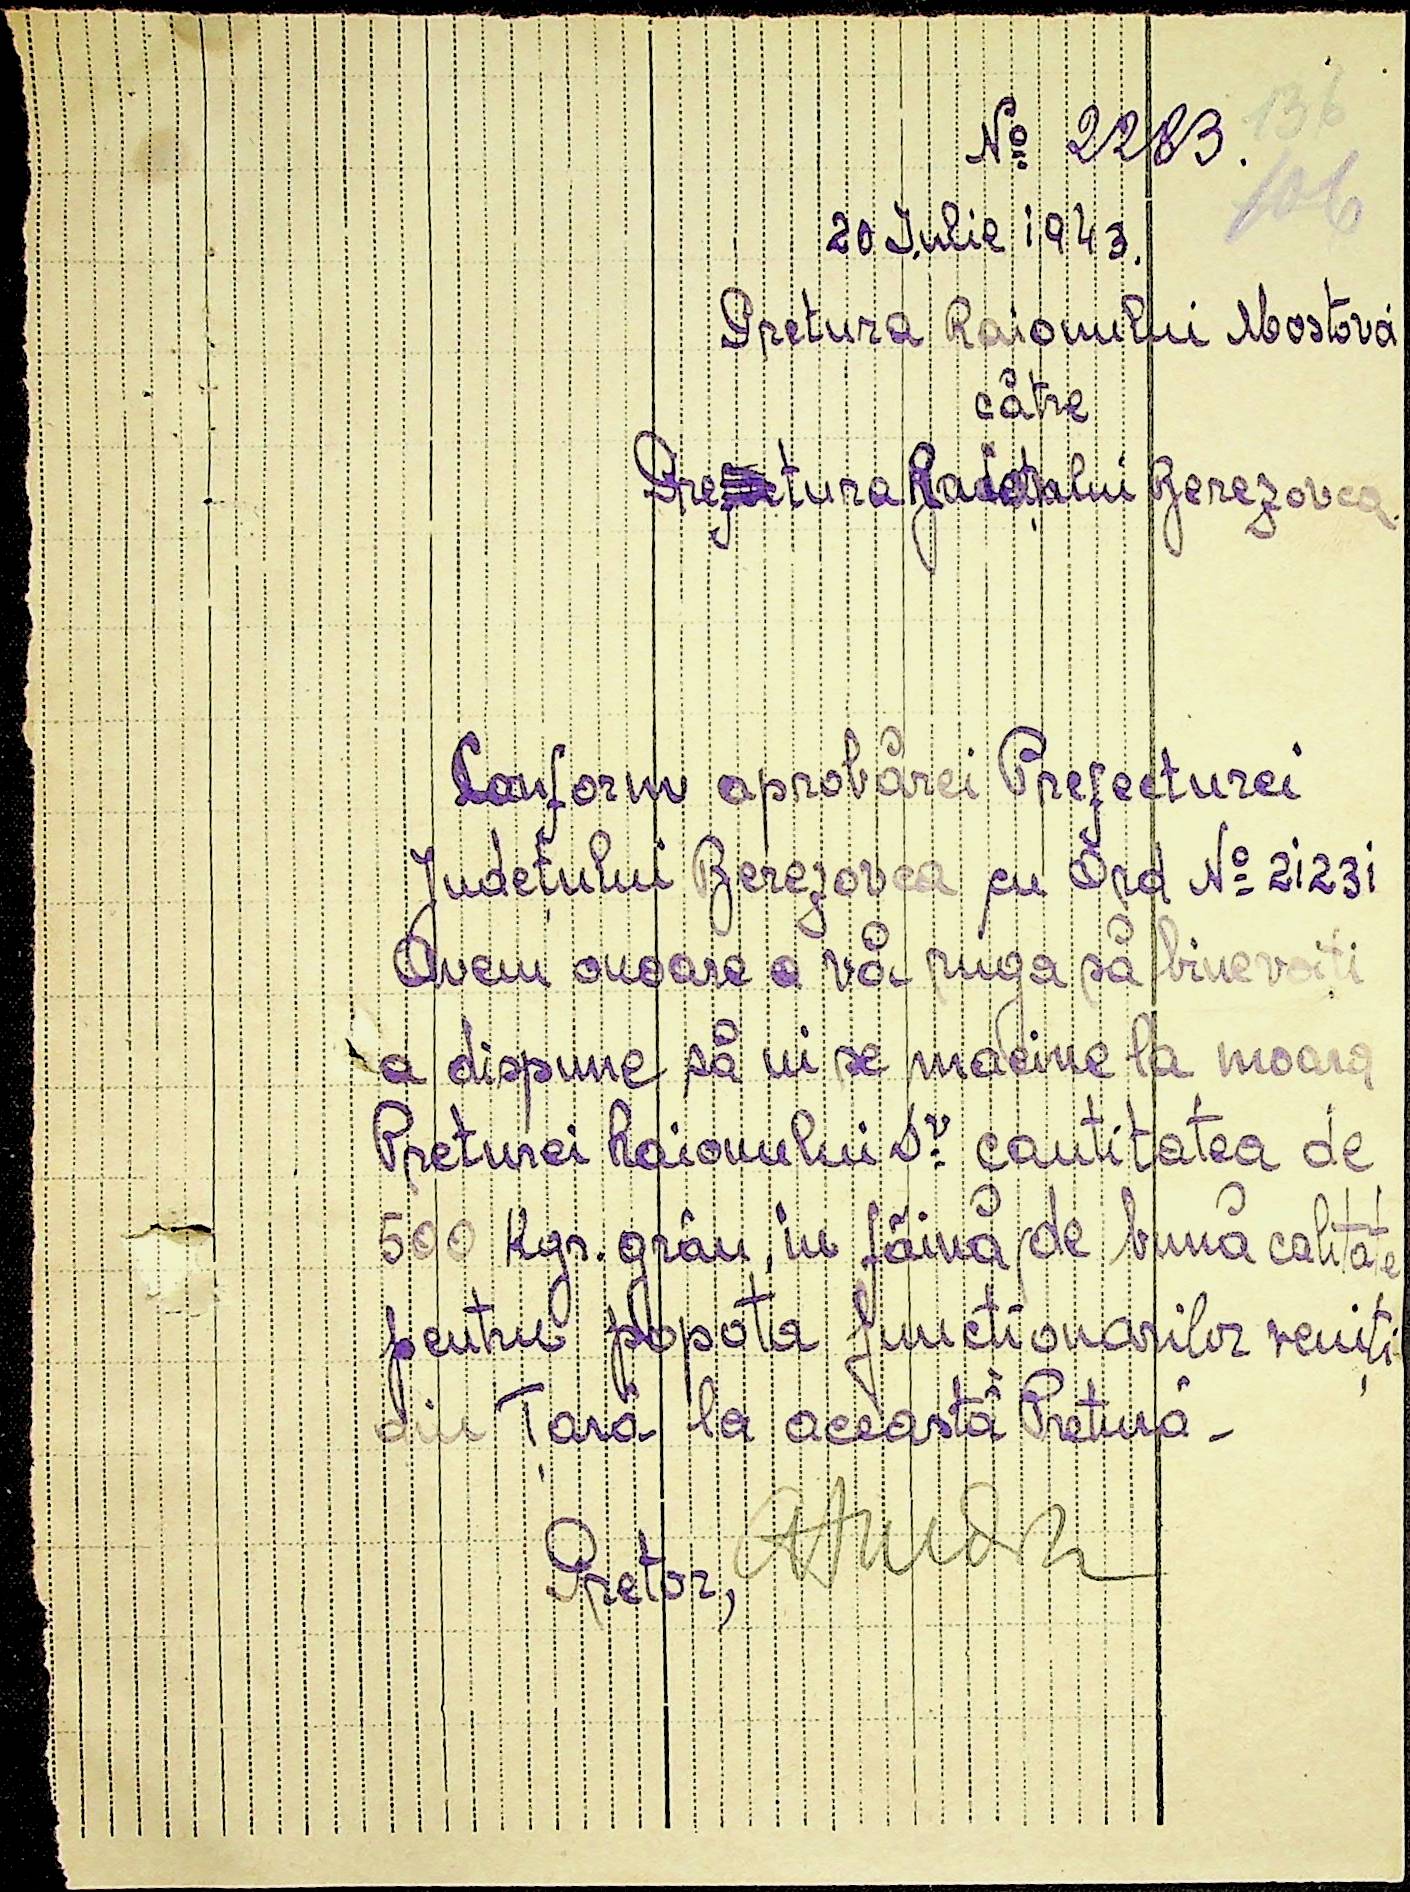 136
No 2283.
106
20 Iulie 1943.
Pretura Raionului Mostovoi
către
Prefectura Județului Berezovca
Conform aprobărei Prefecturei
Județului Berezovca cu Ord No 21231
Avem onoare a vă ruga să binevoiți
a dispune să ni se macine la moara
Preturei Raionului Dv. cantitatea de
500 Kgr. grâu, în făină de bună calitate
pentru popota funcționarilor veniți
din Țară la această Pretură -
Pretor,